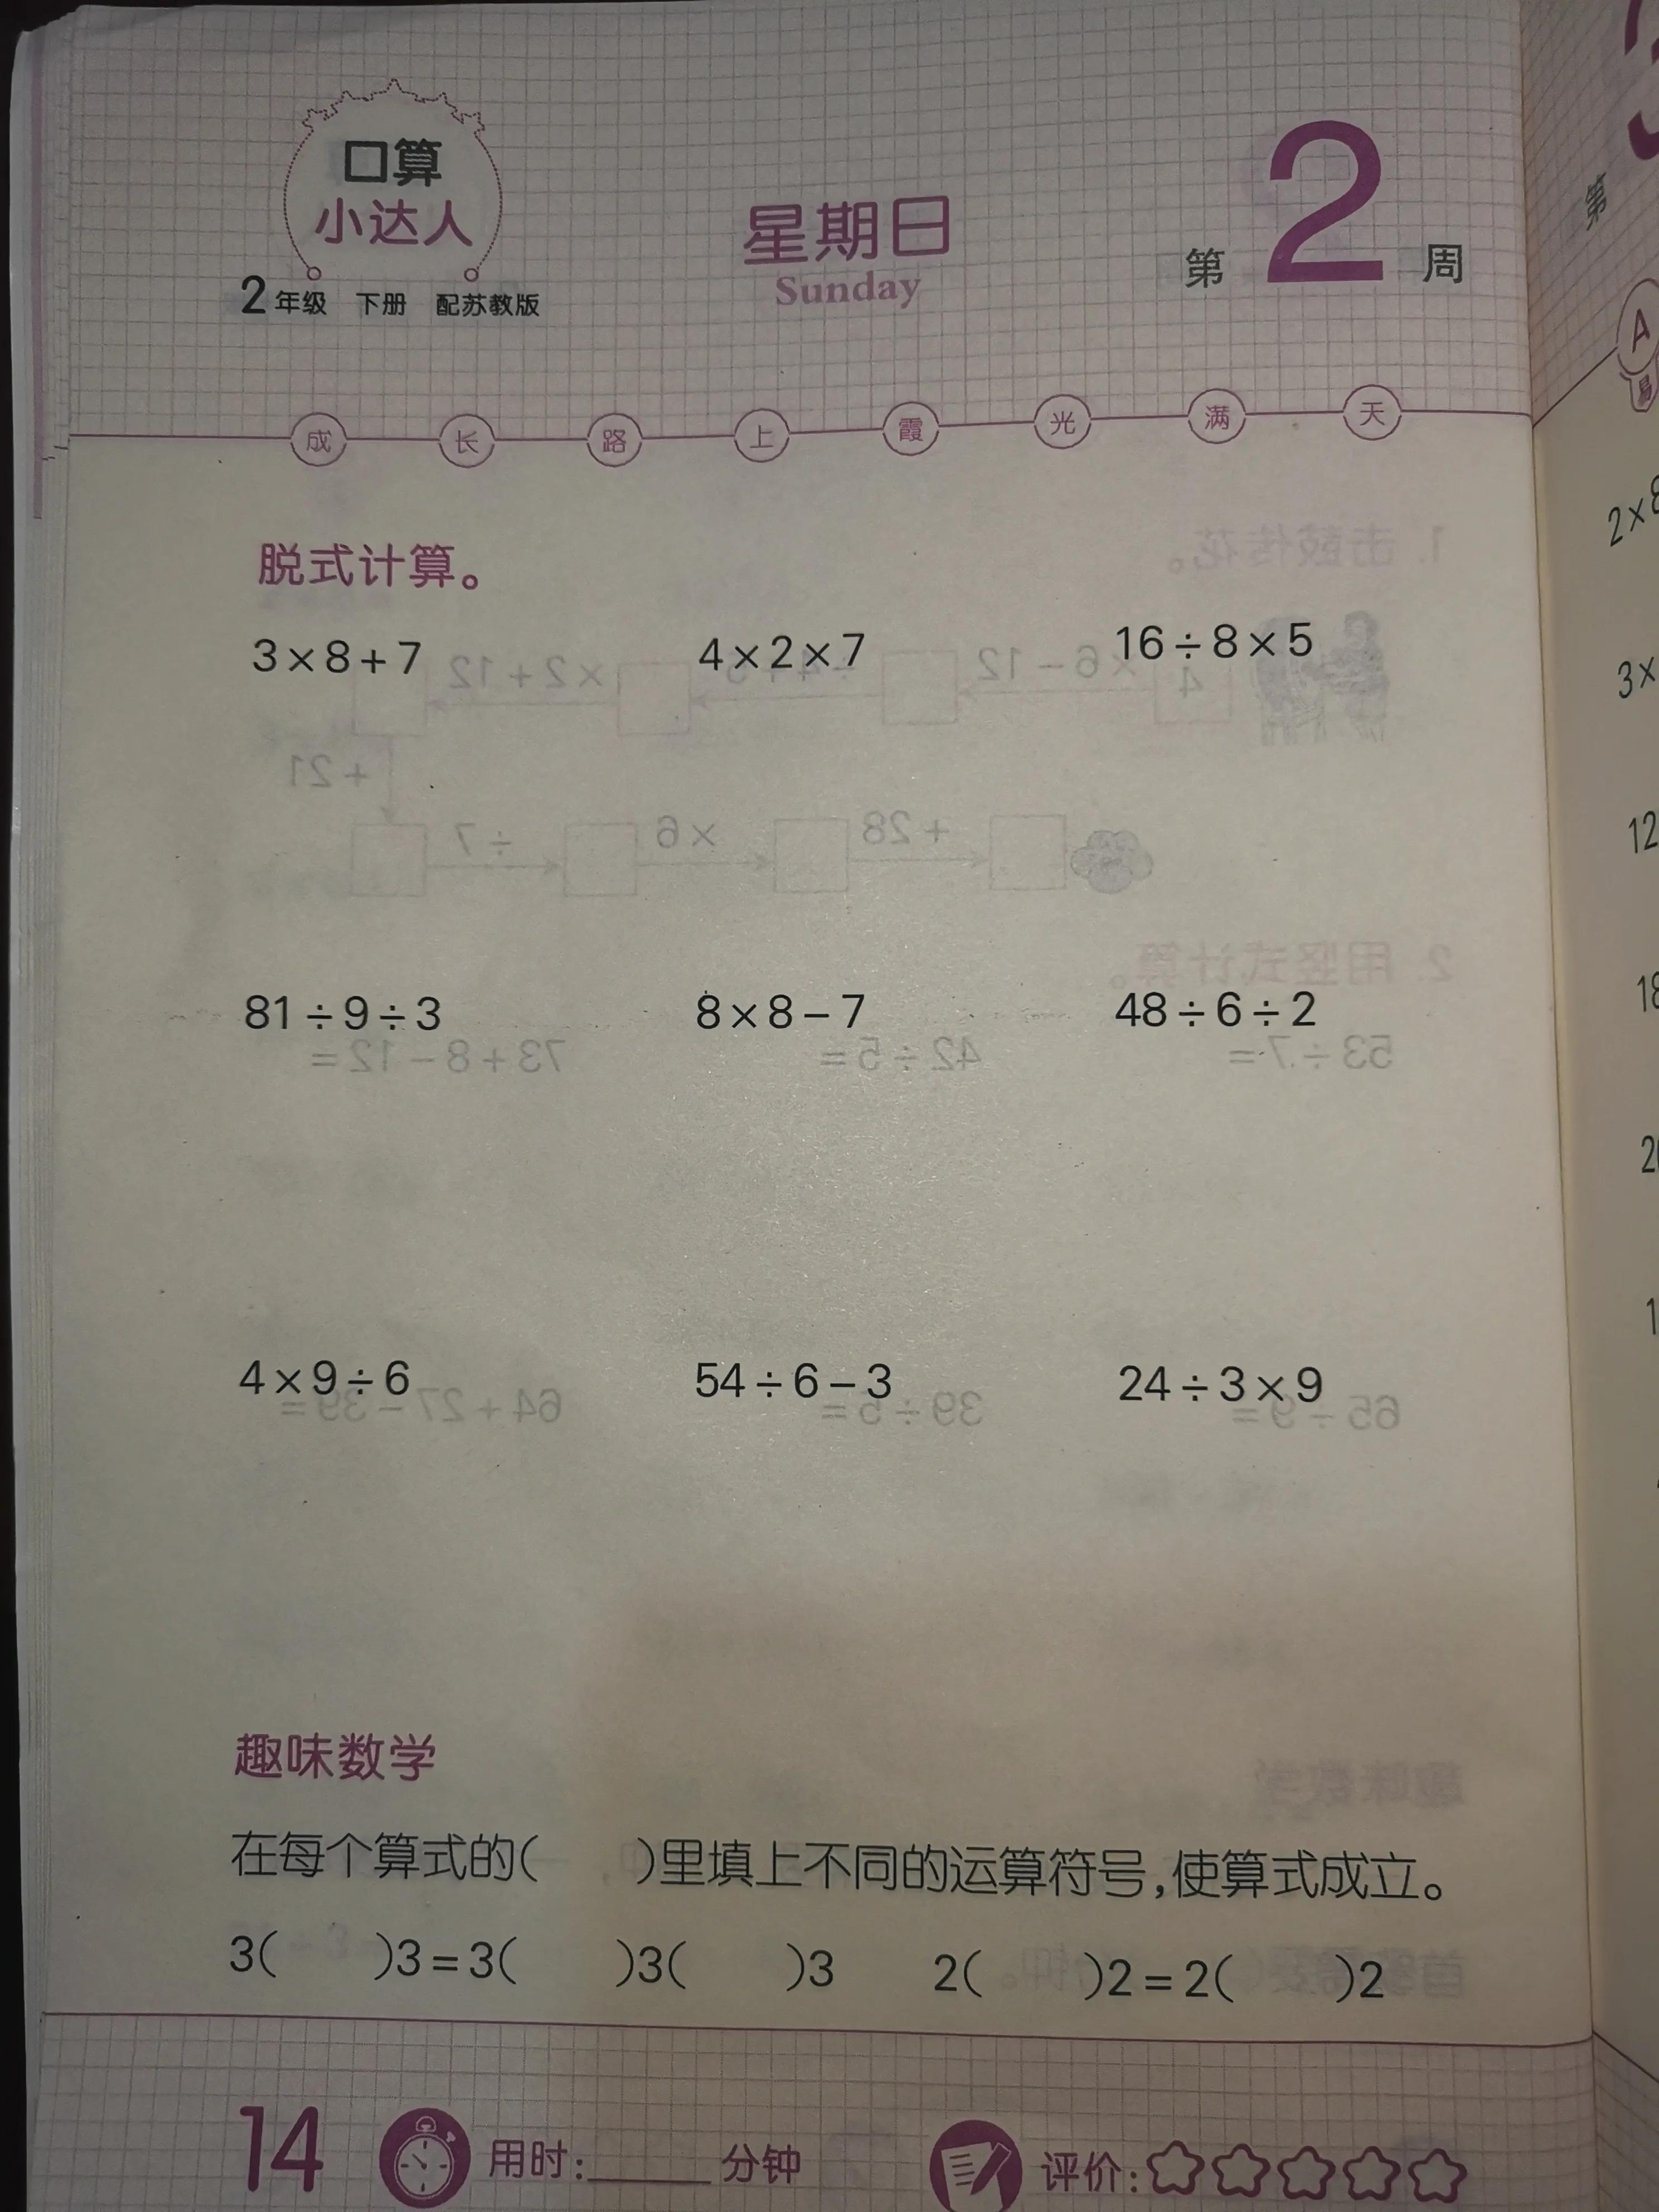 口算
小达人
2年级 下册 配苏教版
星期日
Sunday
第2周
成长路上霞光满天
脱式计算。
3×8+7 4×2×7 16÷8×5
81÷9÷3 8×8-7 48÷6÷2
4×9÷6 54÷6-3 24÷3×9
趣味数学
在每个算式的( )里填上不同的运算符号,使算式成立。
3( )3=3( )3( )3 2( )2=2( )2
14 用时:______分钟 评价:
第
A
易
2×8
3×
12
18